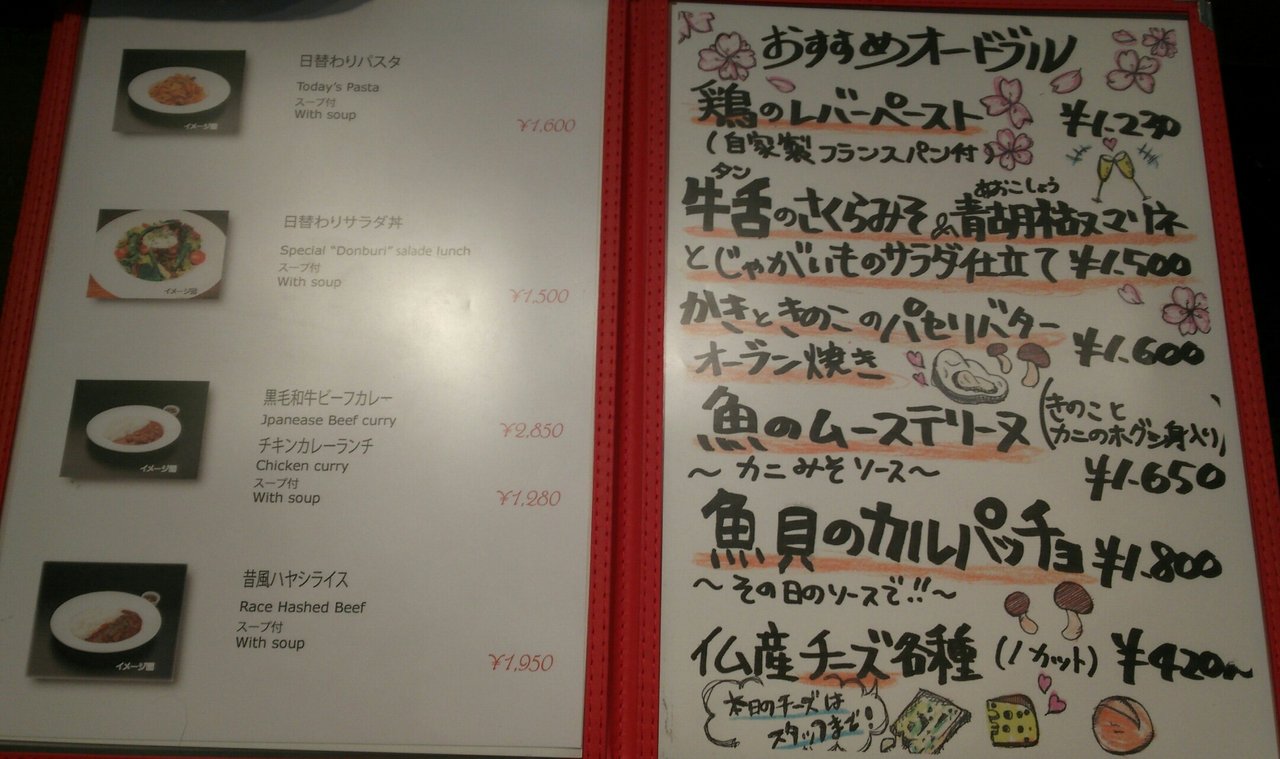 日替わりパスタ
Today's Pasta
スープ付
With soup
¥1,600
イメージ図
日替わりサラダ丼
Special "Donburi" salade lunch
スープ付
With soup
¥1,500
イメージ図
黒毛和牛ビーフカレー
Jpanease Beef curry
¥2,850
チキンカレーランチ
Chicken curry
スープ付
With soup
¥1,280
イメージ図
昔風ハヤシライス
Race Hashed Beef
スープ付
With soup
¥1,950
イメージ図
おすすめオードブル
鶏のレバーペースト ¥1.230
(自家製フランスパン付)
タン あおこしょう
牛舌のさくらみそ&青胡椒マリネ
とじゃがいものサラダ仕立て ¥1.500
かきときのこのパセリバター
オーブン焼き ¥1.600
魚のムーステリーヌ (きのこと
カニのホグシ身入り)
〜カニみそソース〜 ¥1.650
魚貝のカルパッチョ ¥1.800
〜その日のソースで!!〜
仏産チーズ各種 (1カット) ¥420〜
本日のチーズは
スタッフまで!